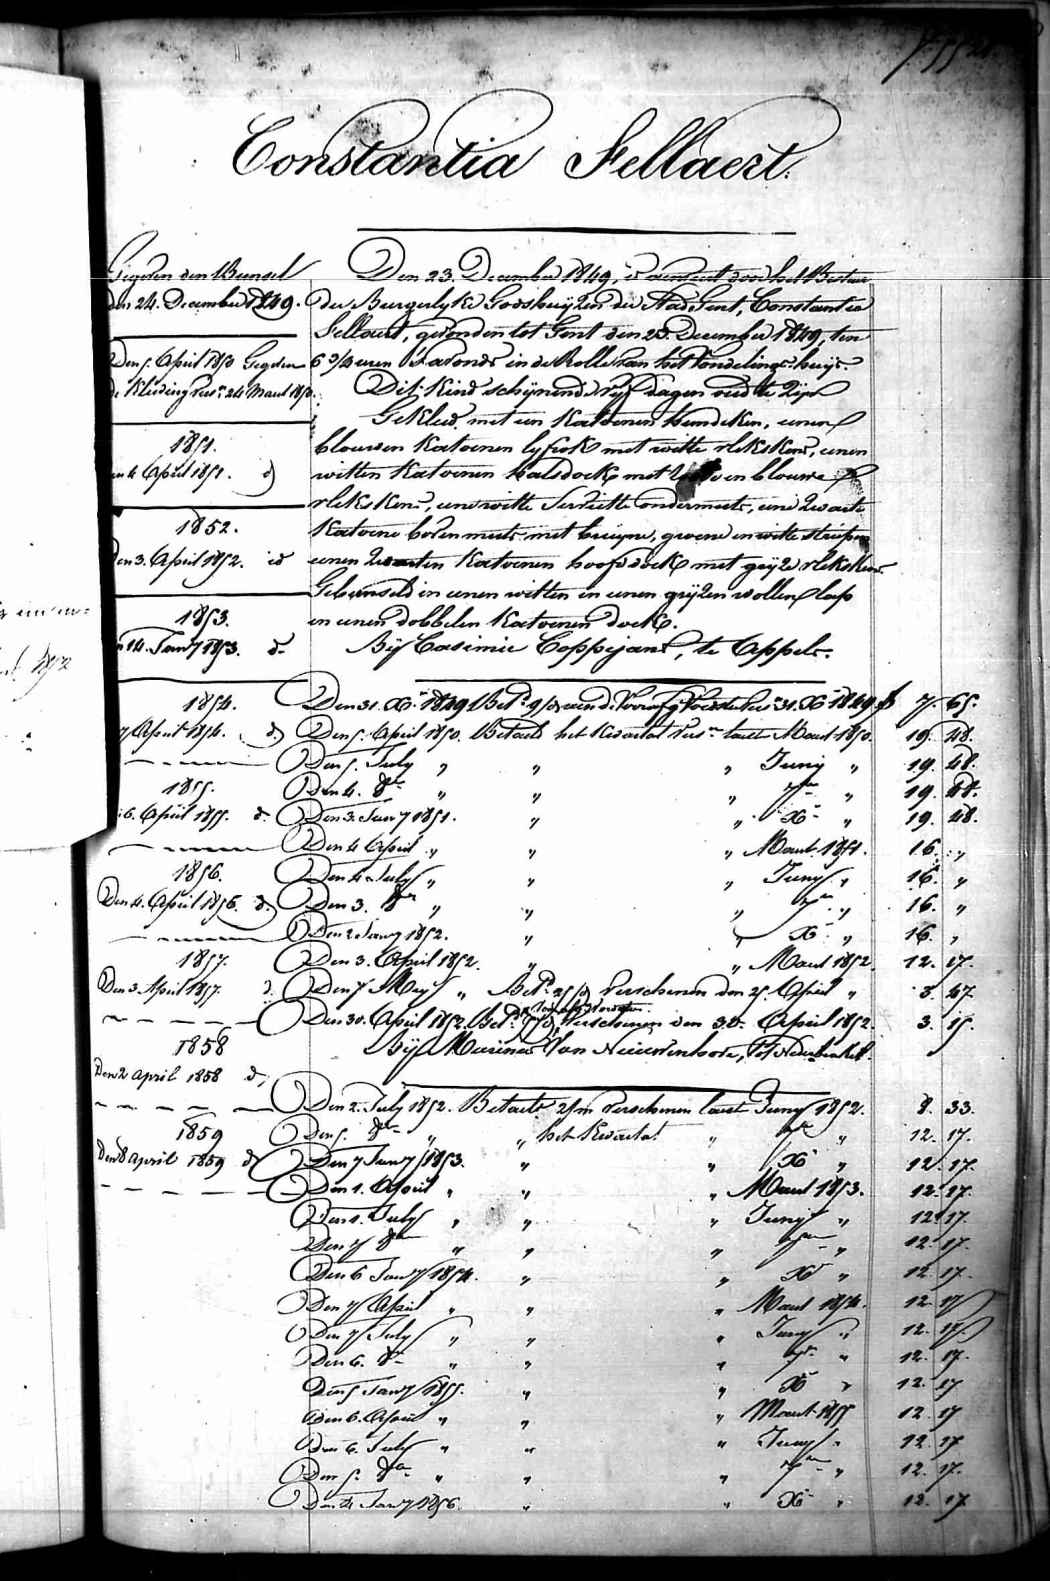 Constantia Fellaert.
Gegeven den Bunsel
den 24. December 1849.
Den 5. April 1850 Gegeven
de Kleeding vers.n 24 Maart 1850.
1851.
den 4 April 1851. d.o
1852.
Den 3. April 1852. id
1853.
14. Janry 1853. d.o
1854.
7 April 1854. d.o
1855.
6. April 1855. d.o
1856.
Den 4. April 1856. d.o
1857.
Den 3. April 1857. d.o
1858
Den 2 april 1858 d.o
1859
Den 8 april 1859 d.o
Den 23. December 1849, is aenveert door het Bestier
der Burgerlyke Godshuyzen der Stad Gent, Constantia
Fellaert, gevonden tot Gent den 23. December 1849, ten
6 3/4 uren 's avonds in de Rolle van het Vondelings-huys.
Dit kind schynende vyf dagen oud te zyn
Gekleed, met een Katoenen hemdeken, eenen
blauwen Katoenen lyfrok met witte vlekskens, eenen
witten Katoenen halsdoek met en blauwe
vlekskens, eene witte Serviette ondermuts, eene zwarte
Katoene bovenmuts met bruyne, groene en witte striepen
eenen zwarten Katoenen hoofddoek met gryze vlekskens.
Gebunseld in eenen witten en eenen gryzen wollen lap
en eenen dobbelen Katoenen doek.
Bij Casimir Coppejans, te Appels.
Den 31. X.r 1849 Bet.d 9/d van de Voorafg. vers.n 31. X.r 1849 f 7. 65.
Den 5. April 1850. Betaelt het Kwartael vers.n laest Maart 1850. 19. 48.
Den 5. July " " " Juny " 19. 48.
Den 4. 8.br " " " 7.br " 19. 48.
Den 3. Janry 1851. " " X.r " 19. 48.
Den 4 April " " " Maart 1851. 16. "
Den 4 July " " " Juny " 16. "
Den 3. 8.br " " " 7.br " 16. "
Den 2 Janry 1852. " " X.r " 16. "
Den 3. April 1852. " " Maart 1852. 12. 17.
Den 7 Mey " Bet.d 25/d verschenen den 25. April " 3. 47
Den 30. April 1852. Bet.d verschenen den 30. April 1852. 3. 15.
Bij Marinus Van Nieuwenhove, tot Nederbrakel.
Den 2. July 1852. Betaelt 2/m verschenen laest Juny 1852. 8. 33.
Den 5. 8.br " " het Kwartael " 7.br " 12. 17.
Den 7 Janry 1853. " " X.r " 12. 17.
Den 1. April " " " Maart 1853. 12. 17.
Den 1. July " " " Juny " 12. 17.
Den 7 8.br " " " 7.br " 12. 17.
Den 6 Janry 1854. " " X.r " 12. 17.
Den 7 April " " " Maart 1854. 12. 17
Den 7 July " " " Juny " 12. 17.
Den 6. 8.br " " " 7.br " 12. 17.
Den 5 Janry 1855. " " X.r " 12. 17
Den 6. April " " " Maart 1855 12. 17
Den 6. July " " " Juny " 12. 17.
Den 5. 8.br " " " 7.br " 12. 17.
Den 4 Janry 1856. " " X.r " 12. 17